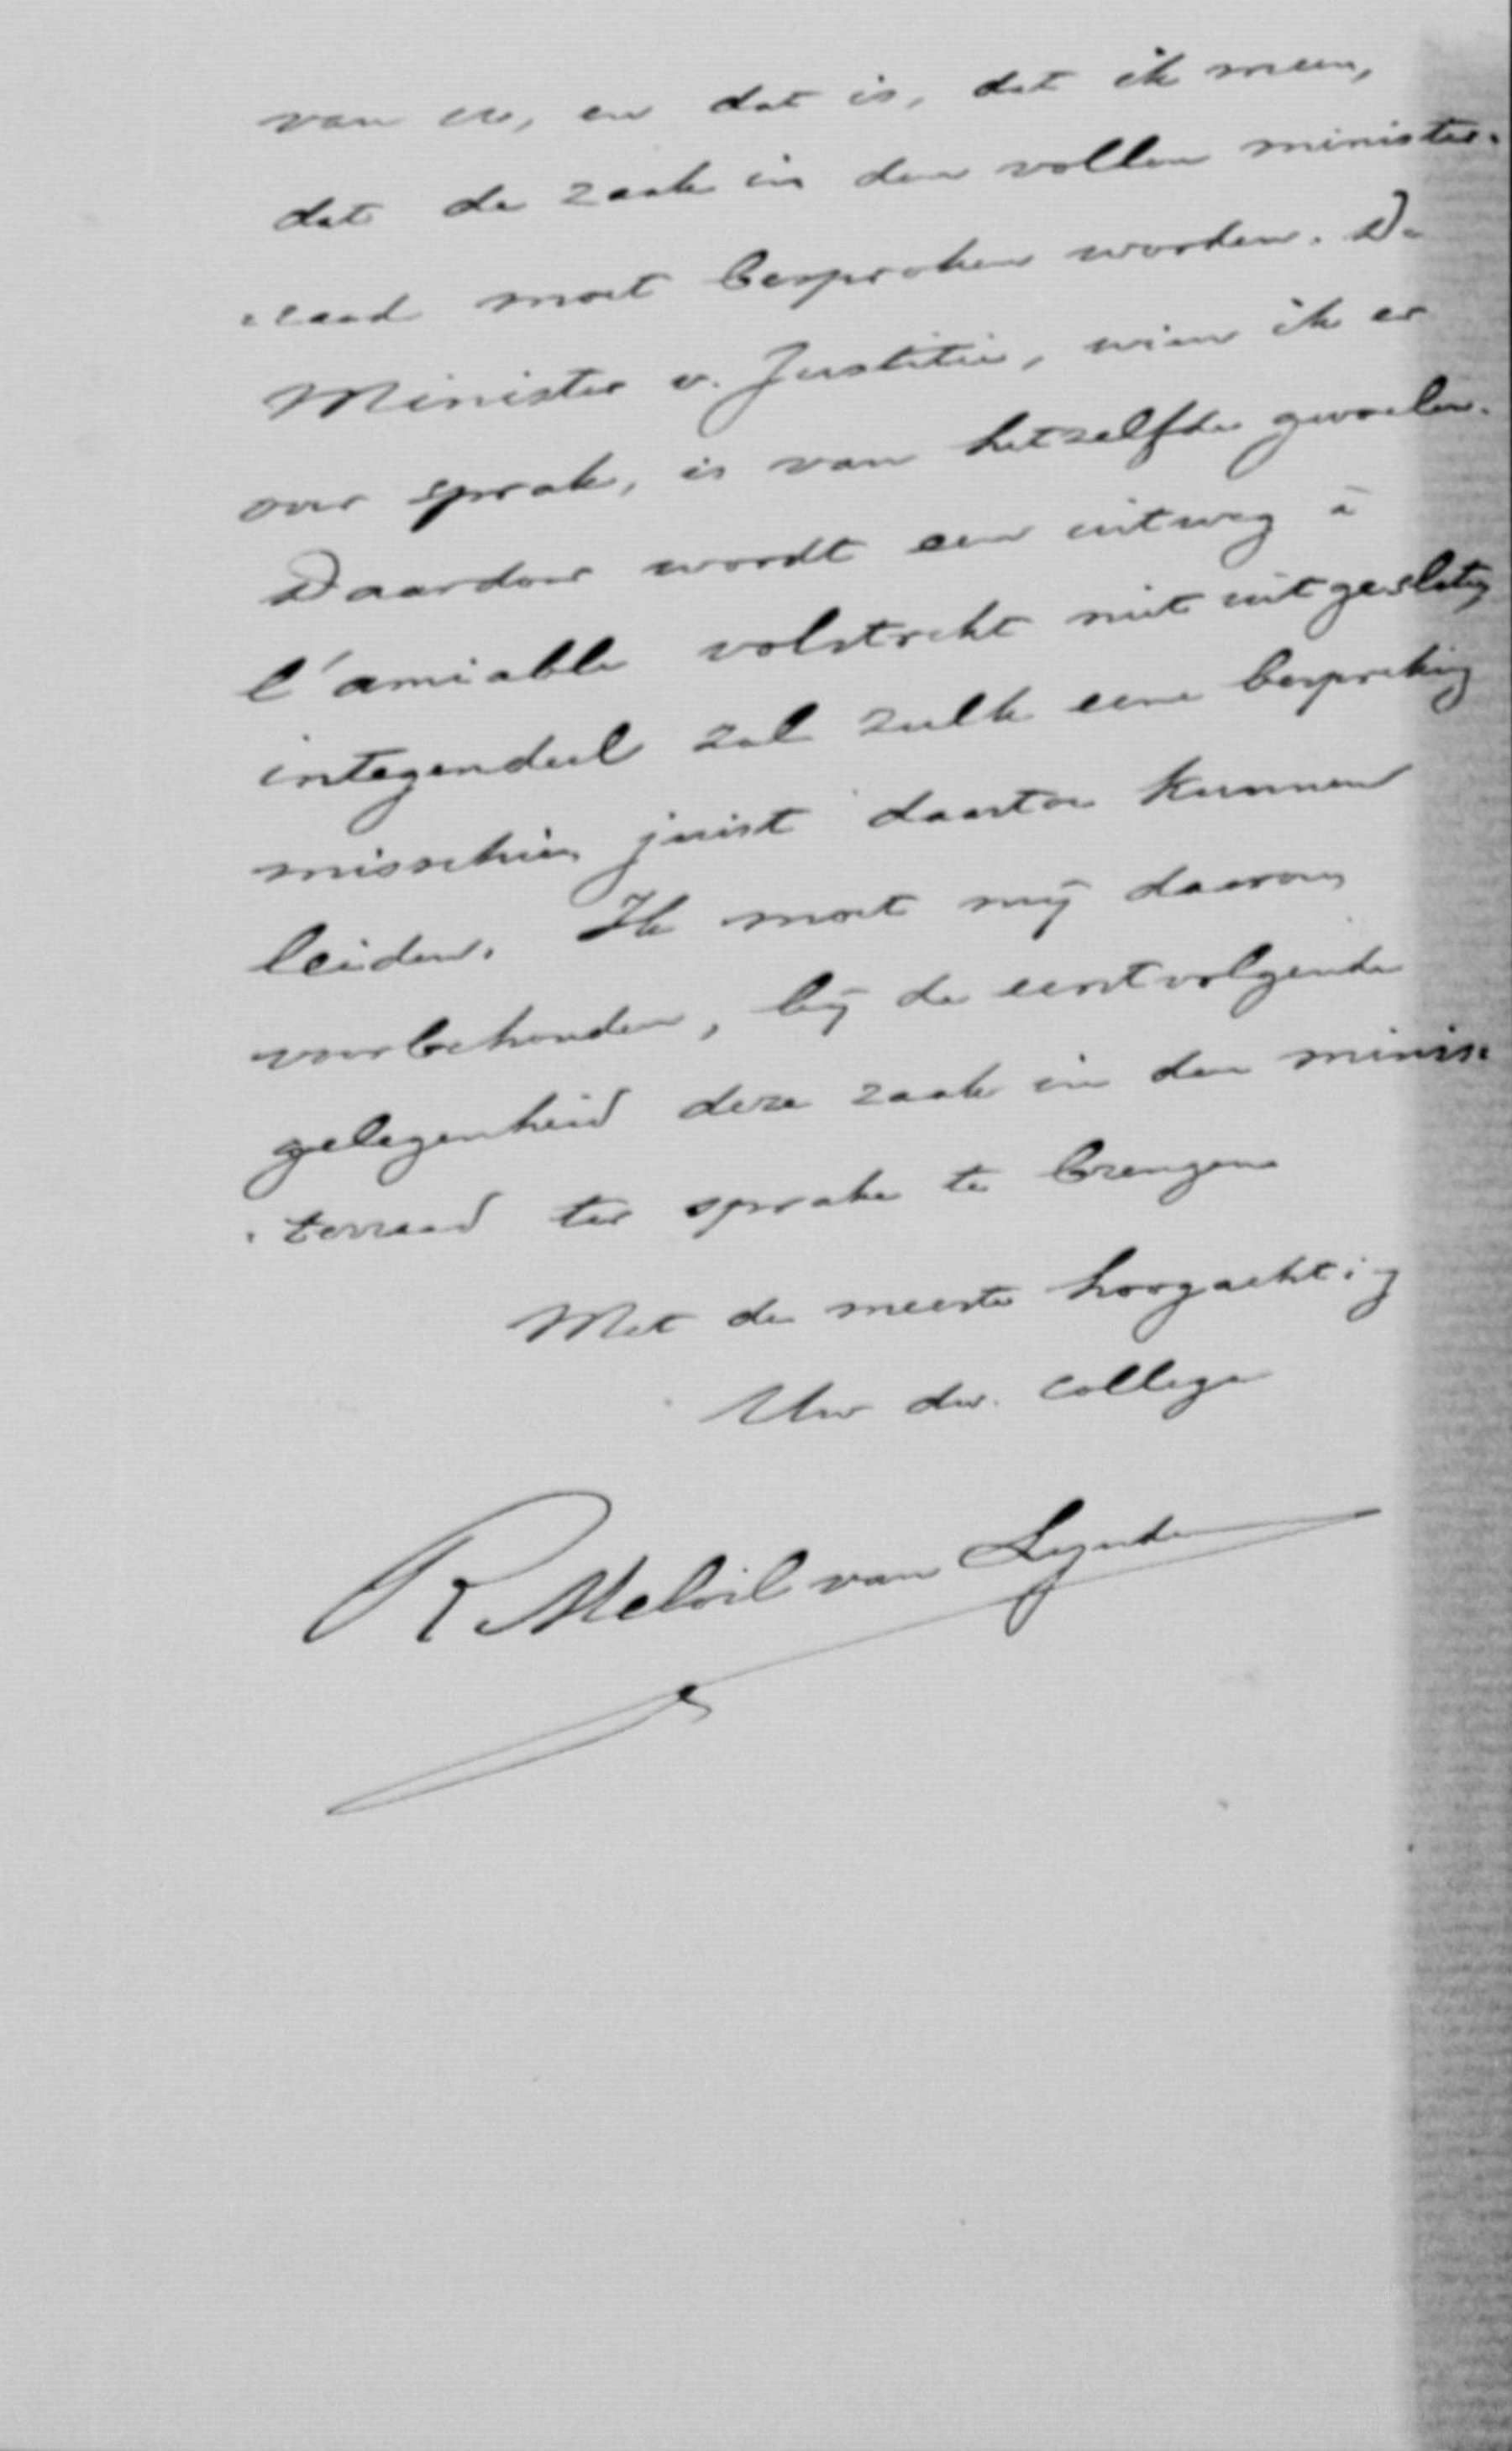 van Uw, en dat is, dat ik meen,
dat de zaak in den vollen minister-
-raad moet besproken worden. De
Minister v. Justitie, wien ik er
over sprak, is van hetzelfde gevoelen.
Daardoor wordt een uitweg à
l'amiable volstrekt niet uitgesloten
integendeel zal zulk eene bespreking
misschien juist daartoe kunnen
leiden. Ik moet mij daarom
voorbehouden, bij de eerstvolgende
gelegenheid deze zaak in den minis-
-terraad ter sprake te brengen
Met de meeste hoogachting
Uw dw. collega
R Melvil van Lynden